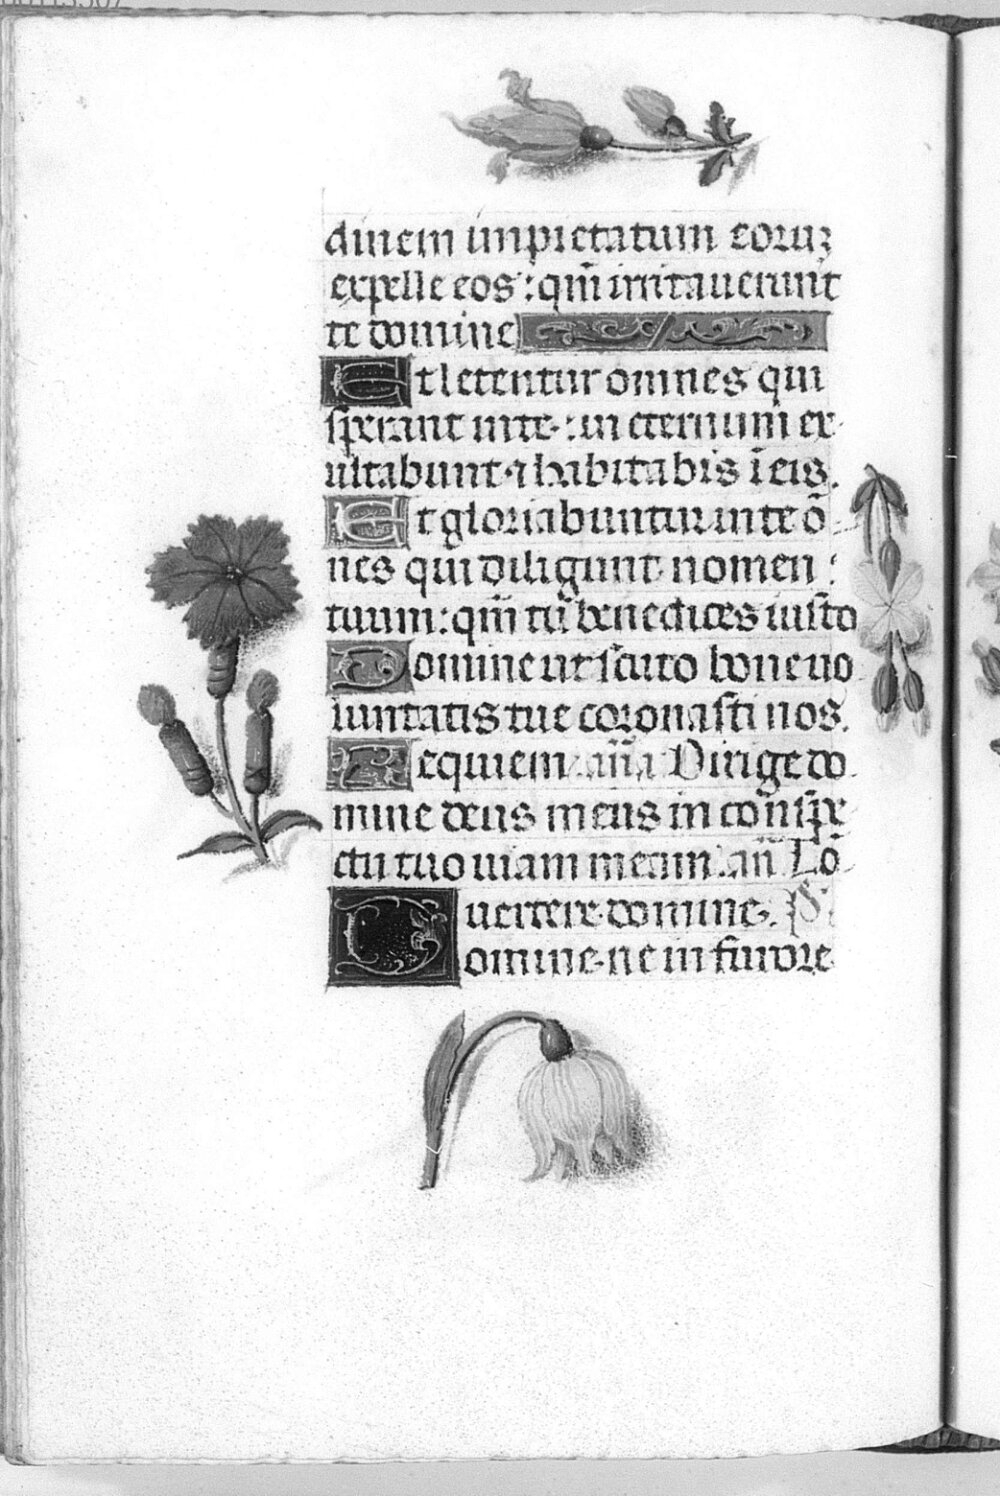 dinem impietatum eoruꝫ
expelle eos : qm̄ irritauerunt
te domine
Et letentur omnes qui
sperant in te : in eternum ex
ultabunt ⁊ habitabis ī eis.
Et gloriabuntur in te ō
nes qui diligunt nomen :
tuum : qm̄ tu benedices iusto
Domine ut scuto bone uo
luntatis tue coronasti nos.
Requiem. an̄a Dirige do
mine deus meus in conspe
ctu tuo uiam meam. an̄
uertere domine. Ps
Domine ne in furore